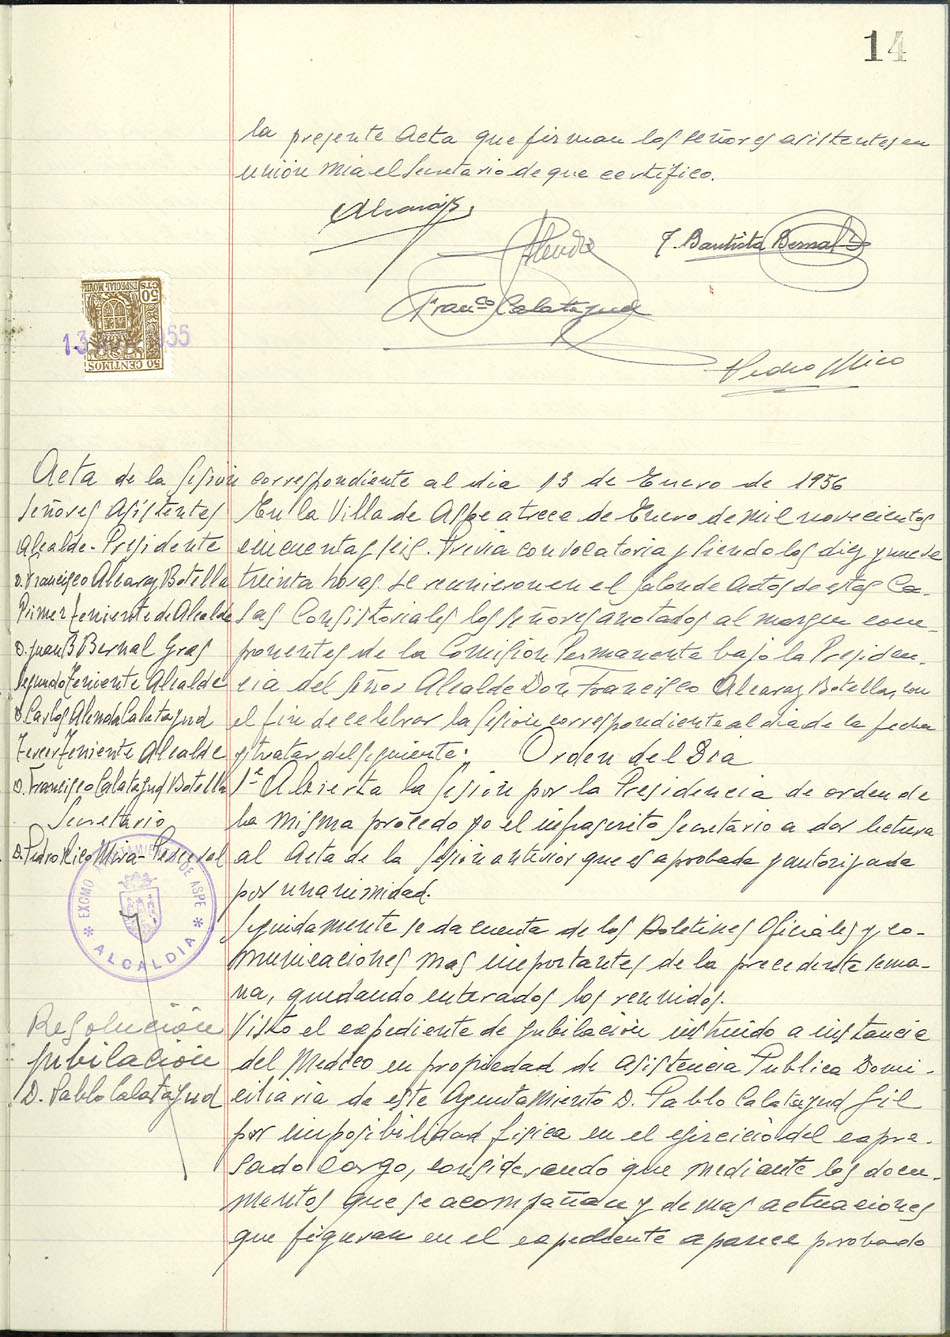 14
la presente Acta que firman los señores asistentes en
unión mia el Secretario de que certifico.
J. Bautista Bernal
Franco Calatayud
Pedro Mico
50 CTS
ESPECIAL MOVIL
50 CENTIMOS
13 955
Acta de la Sesión correspondiente al dia 13 de Enero de 1956
Señores Asistentes
Alcalde-Presidente
D. Francisco Alcaraz Botella
Primer Teniente de Alcalde
D. Juan B Bernal Gras
Segundo Teniente Alcalde
D. Carlos Alenda Calatayud
Tercer Teniente Alcalde
D. Francisco Calatayud Botella
Secretario
D. Pedro Rico Mira-
EXCMO AYUNTAMIENTO DE ASPE
* ALCALDIA *
En la Villa de Aspe a trece de Enero de mil novecientos
cincuenta y seis. Previa convocatoria y siendo las diez y nueve
treinta horas se reunieron en el Salon de Actos de estas Ca-
sas Consistoriales los señores anotados al margen com-
ponentes de la Comisión Permanente bajo la Presiden-
cia del Señor Alcalde Don Francisco Alcaraz Botella, con
el fin de celebrar la Sesión correspondiente al dia de la fecha
y tratar del siguiente: Orden del Dia
1º Abierta la Sesión por la Presidencia de orden de
la misma procedo yo el infrascrito Secretario a dar lectura
al Acta de la Sesión anterior que es aprobada y autorizada
por unanimidad.
Seguidamente se da cuenta de los Boletines Oficiales y co-
municaciones mas importantes de la precedente sema-
na, quedando enterados los reunidos.
Resolución
jubilación
D. Pablo Calatayud
Visto el expediente de jubilación instruido a instancia
del Medico en propiedad de Asistencia Publica Domi-
ciliaria de este Ayuntamiento D. Pablo Calatayud Gil
por imposibilidad fisica en el ejercicio del expre-
sado cargo, considerando que mediante los docu-
mentos que se acompañan y demas actuaciones
que figuran en el expediente aparece probado